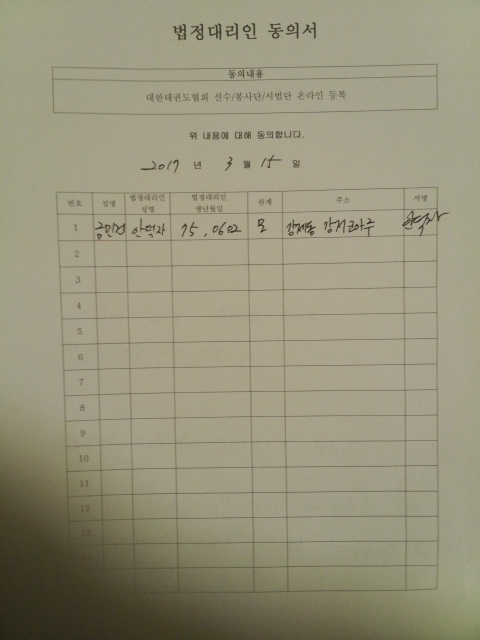 법정대리인 동의서
동의내용
대한태권도협회 선수/봉사단/시범단 온라인 등록
위 내용에 대해 동의합니다.
2017 년 3 월 15 일
번호 성명 법정대리인 성명 법정대리인 생년월일 관계 주소 서명
1 금민건 안덕자 75, 0602 모 강제동
2
3
4
5
6
7
8
9
10
11
12
13